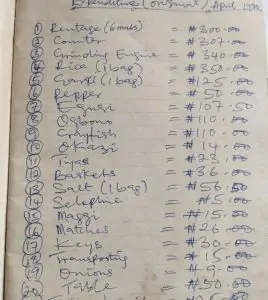 Expenditure (original) / April
① Rentage (6mths) = ₦300.00
② Counter = ₦307.00
③ Grinding Engine = ₦340.00
④ Rice (1bag) = ₦350.00
⑤ Garri (1bag) = ₦125.00
⑥ Pepper = ₦50.00
⑦ Egusi = ₦107.50
⑧ Ogbono = ₦110.00
⑨ Crayfish = ₦110.00
⑩ Okazi = ₦14.00
⑪ = ₦23.00
⑫ Baskets = ₦36.00
⑬ Salt (1bag) = ₦56.50
⑭ Selephine = ₦5.00
⑮ Maggi = ₦15.00
⑯ Matches = ₦26.00
⑰ Keys = ₦30.00
⑱ Transporting = ₦15.00
⑲ Onions = ₦9.00
⑳ Table = ₦50.00